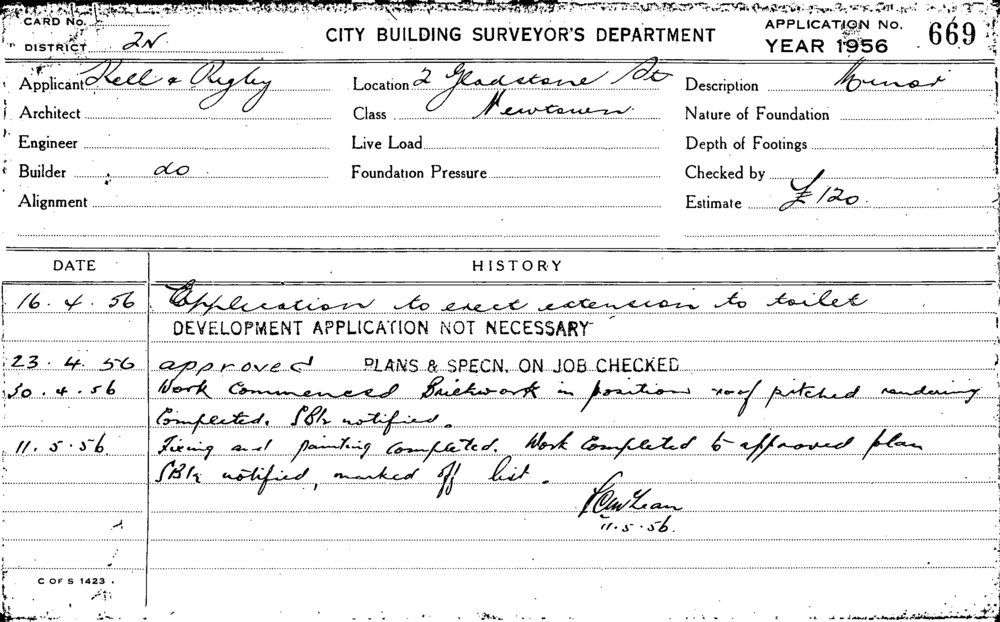 CARD No.
DISTRICT 2N
CITY BUILDING SURVEYOR'S DEPARTMENT
APPLICATION No. 669
YEAR 1956
Applicant Kell & Rigby
Location 2 Gladstone St
Description Minor
Architect
Class Newtown
Nature of Foundation
Engineer
Live Load
Depth of Footings
Builder do
Foundation Pressure
Checked by
Alignment
Estimate £120
DATE HISTORY
16.4.56 Application to erect extension to toilet
DEVELOPMENT APPLICATION NOT NECESSARY
23.4.56 approved PLANS & SPECN. ON JOB CHECKED
30.4.56 Work Commenced Brickwork in position roof pitched rendering
Completed. notified.
11.5.56 Fixing and painting completed. Work Completed to approved plan
notified, marked off list.
11.5.56.
C OF S 1423.